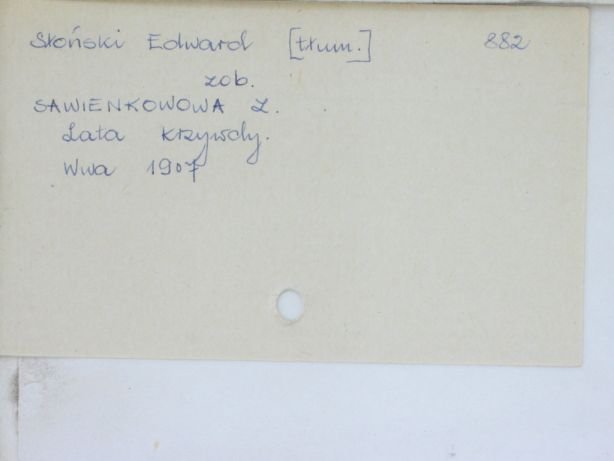 Słoński Edward [tłum.] 882
zob.
SAWIENKOWOWA Z.
Lata krzywdy.
Wwa 1907